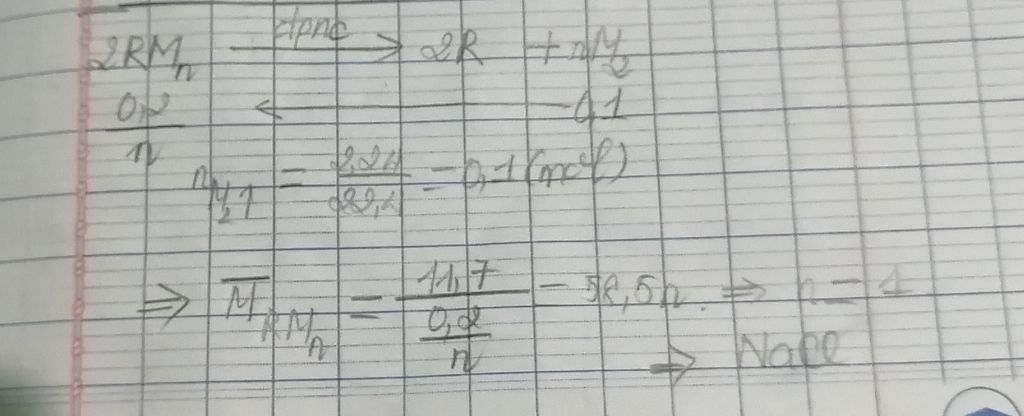 2RM_n —đpnc→ 2R + nM_2
0,2/n ← 0,1
n_M_2↑ = 2,24/22,4 = 0,1 (mol)
⇒ M̅_RM_n = 11,7/(0,2/n) = 58,5n. ⇒ n = 1
⇒ NaCl